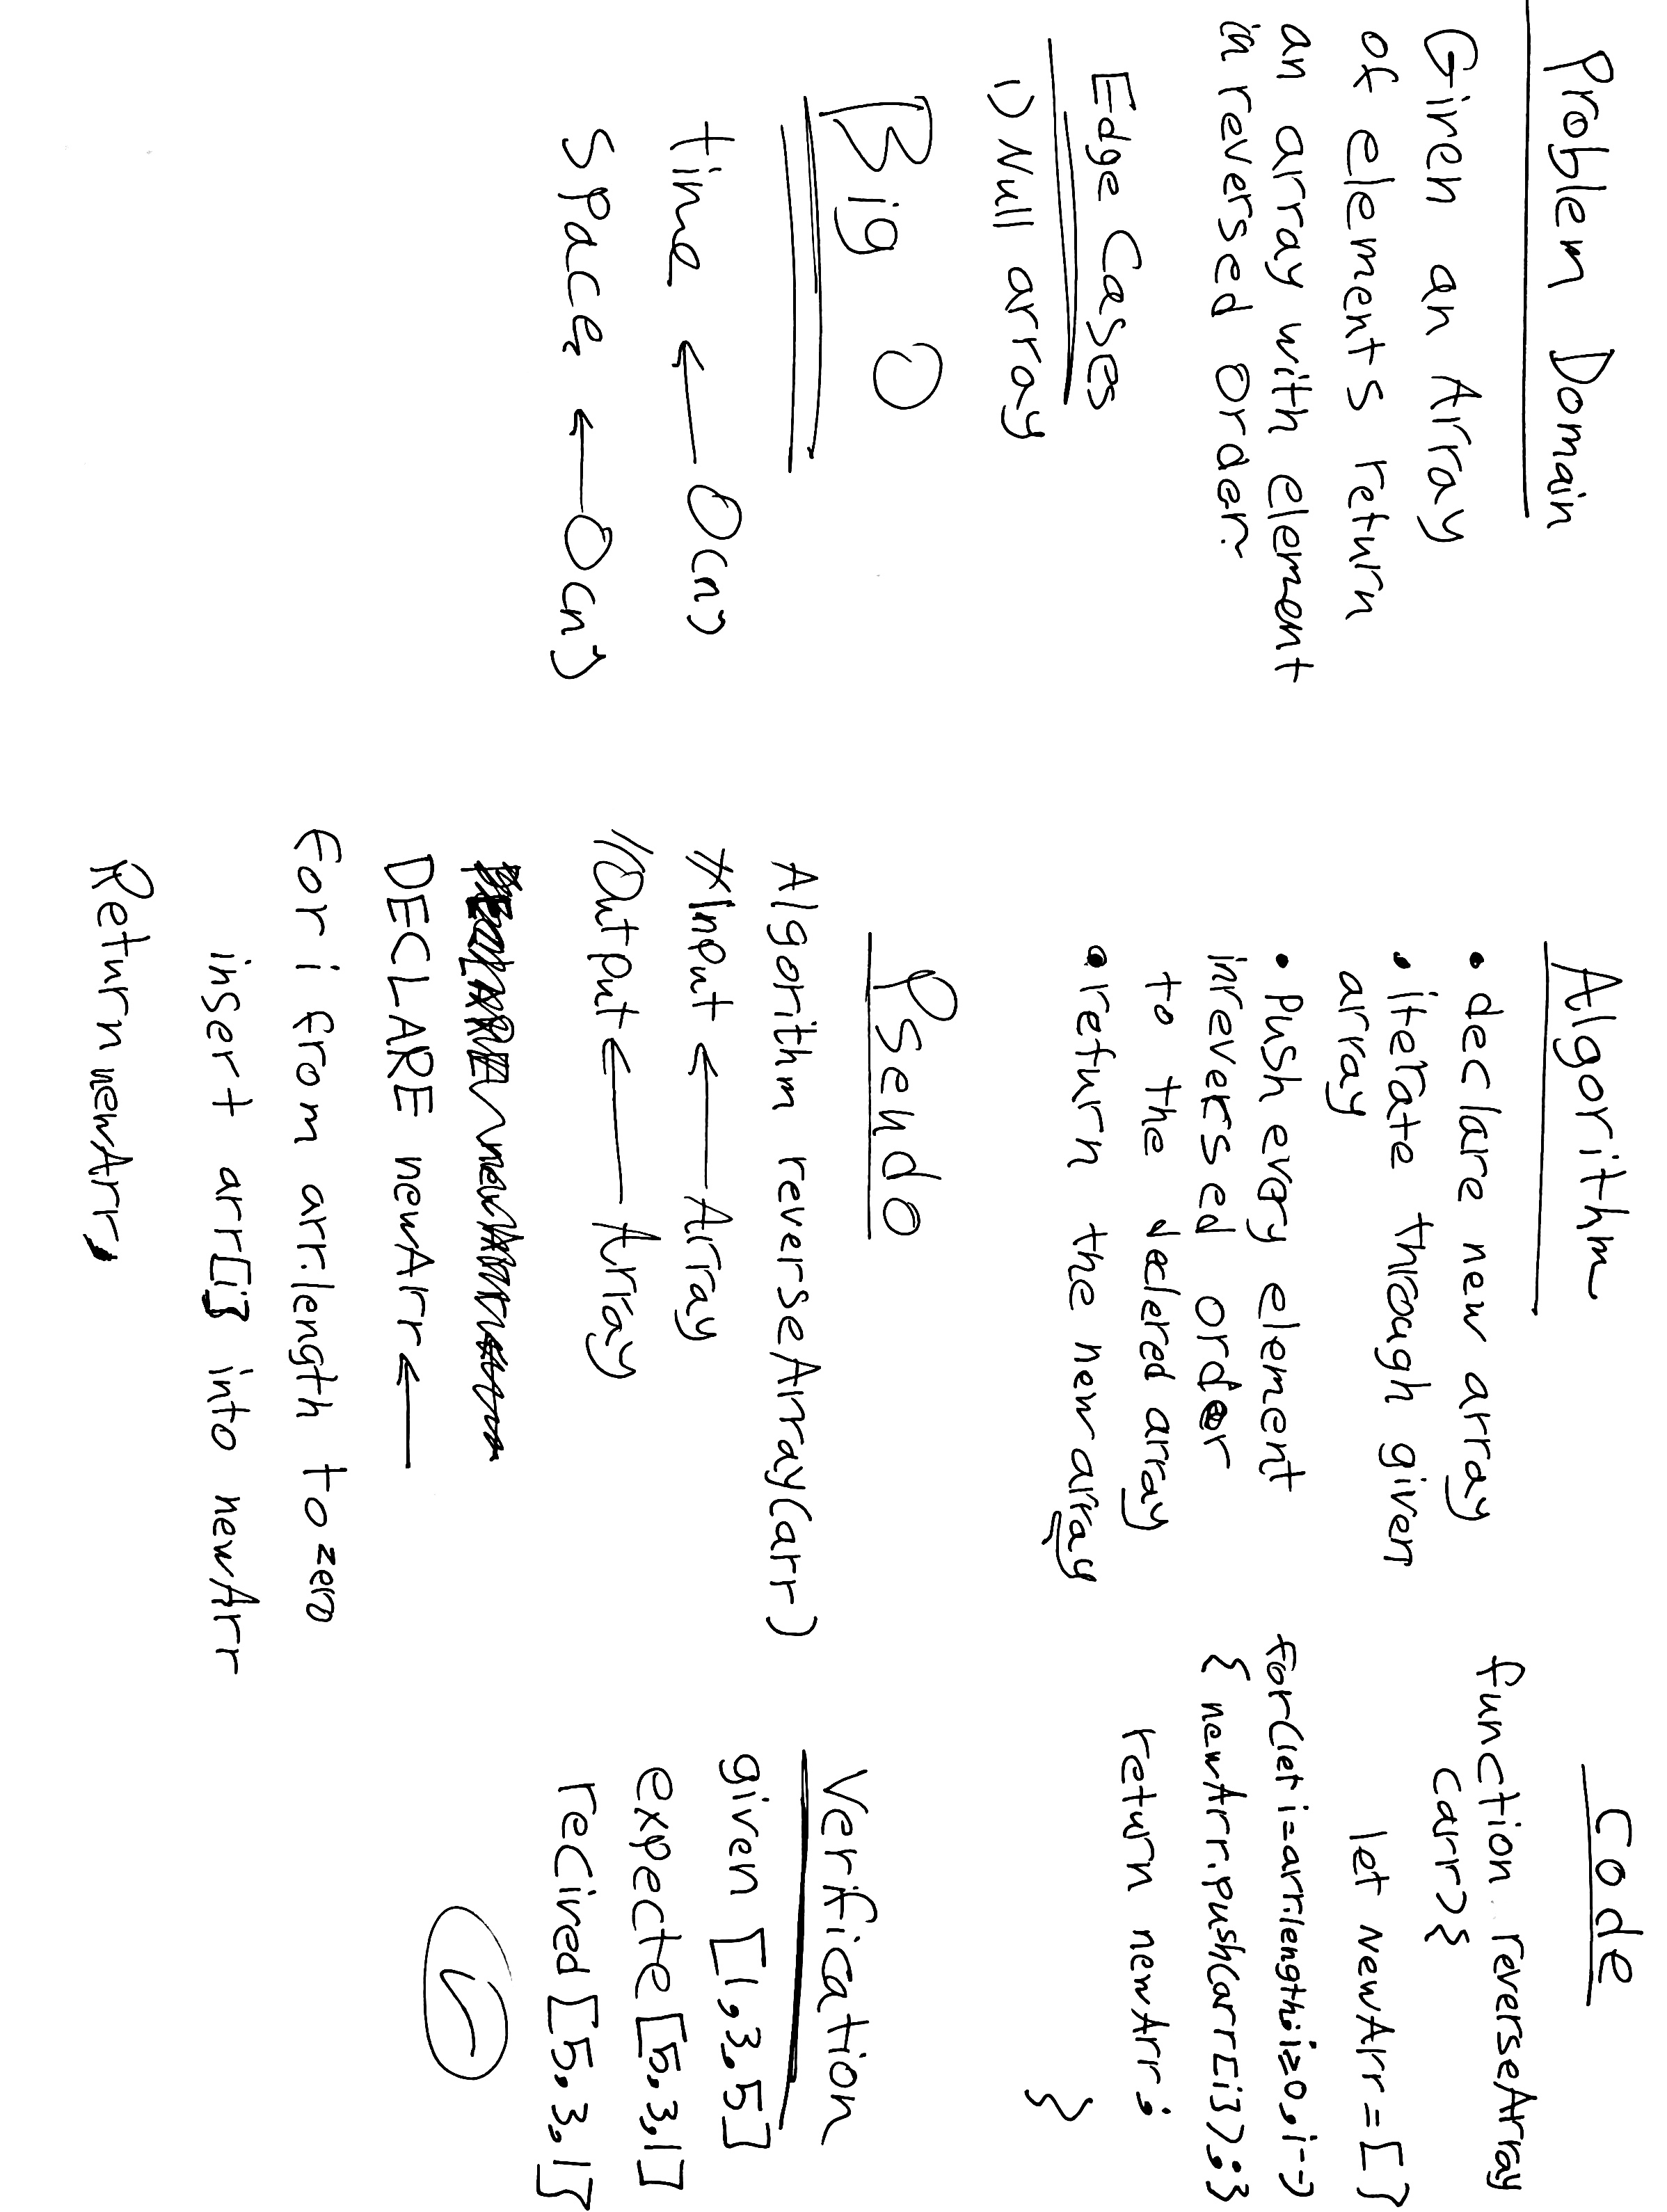 Problem Domain
Given an Array
of elements return
an array with element
in reversed order.
Edge Cases
1) Null array
Big O
time ← O(n)
space ← O(n)
Algorithm
• declare new array
• iterate through given
array
• Push every element
in reversed order
to the declered array
• return the new array
Pseudo
Algorithm reverseArray(arr)
//Input ← Array
//Output ← Array
DECLARE newArr ←
for i from arr.length to zero
insert arr[i] into newArr
Return newArr,
Code
function reverseArray
(arr){
let newArr = []
for(let i=arr.length; i≥0, i--)
{ newArr.push(arr[i]); }
return newArr;
}
Verification
given [1,3,5]
expecte [5,3,1]
recived [5,3,1]